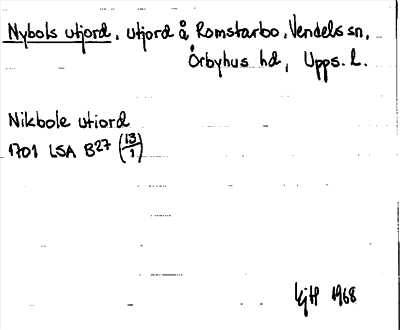 Nybols utjord, utjord å Romstarbo, Vendels sn,
Örbyhus hd, Upps. L.
Nikbole utiord
1701 LSA B27 (13/1)
1968